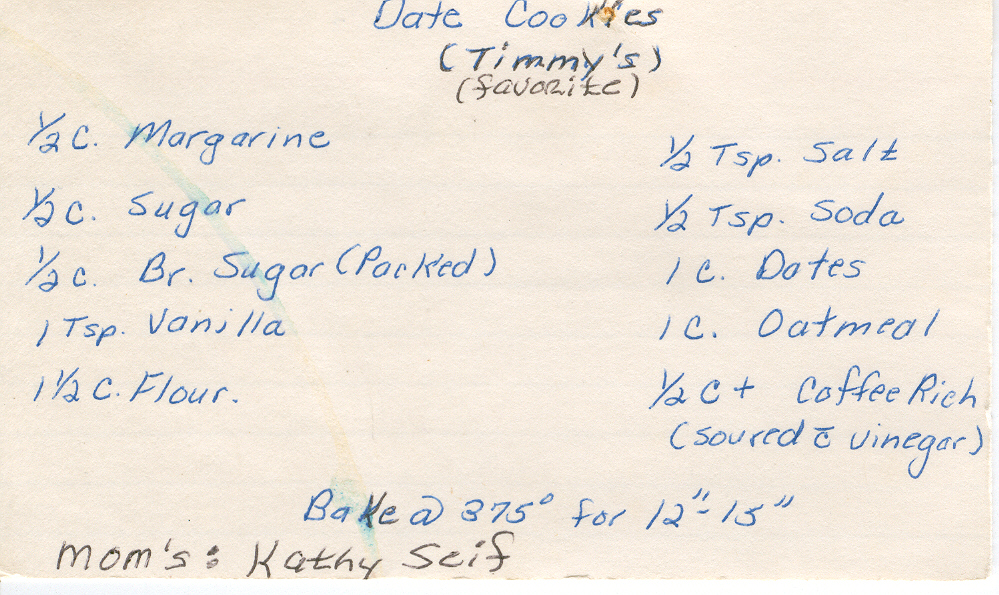 Date Cookies
(Timmy's)
(favorite)
1/2 C. Margarine
1/2 C. Sugar
1/2 C. Br. Sugar (Packed)
1 Tsp. Vanilla
1 1/2 C. Flour.
1/2 Tsp. Salt
1/2 Tsp. Soda
1 C. Dates
1 C. Oatmeal
1/2 C + Coffee Rich
(soured c̄ vinegar)
Bake @ 375° for 12"-15"
Mom's: Kathy Seif